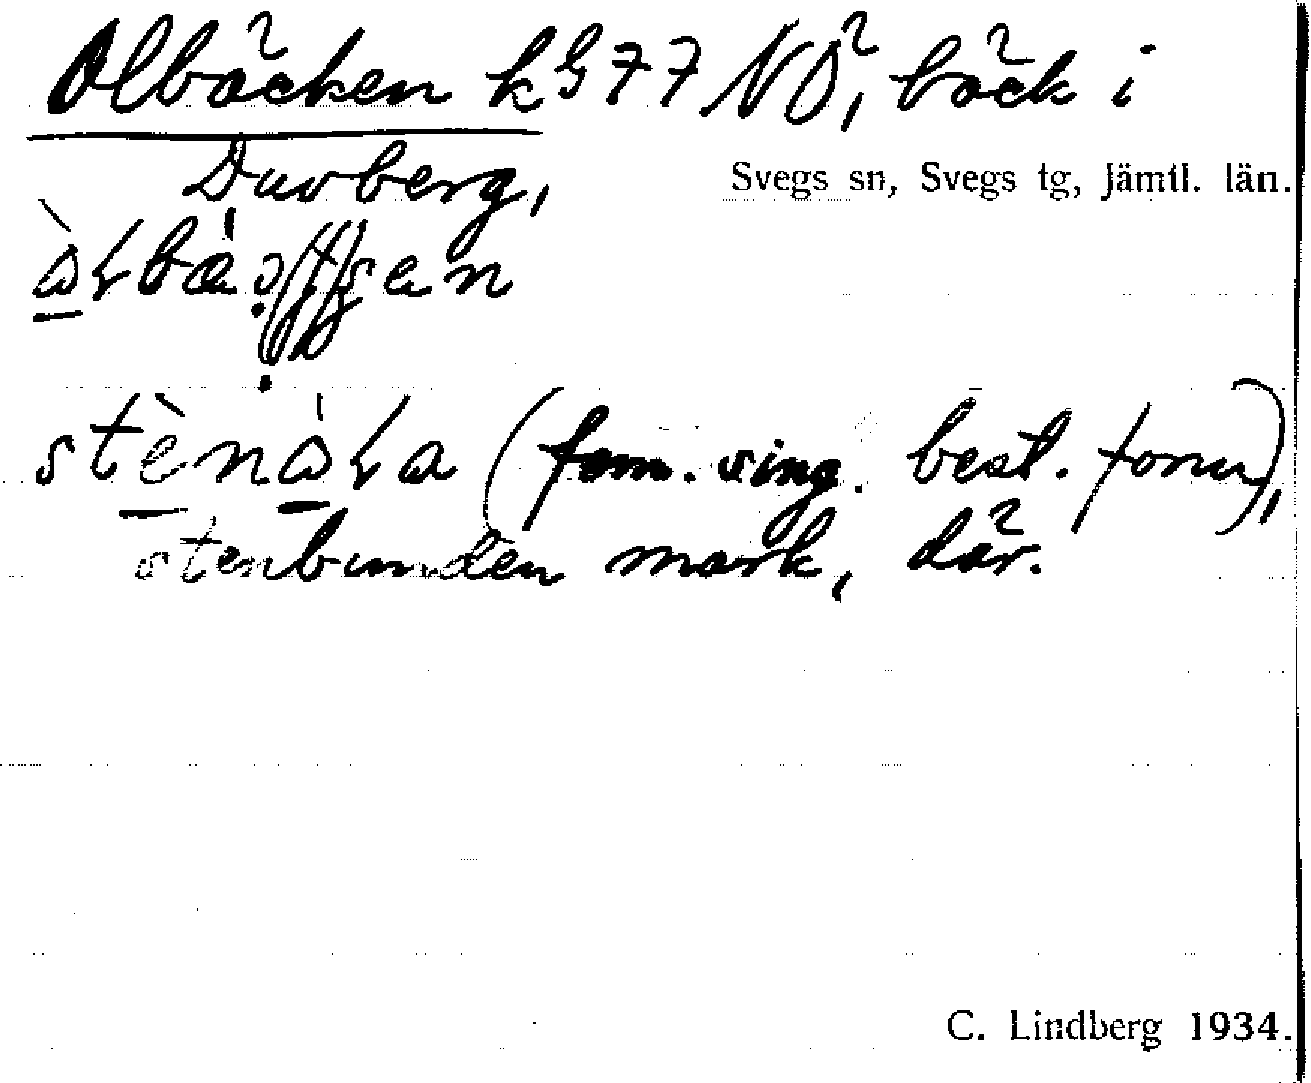 Olbäcken k G 77 NÖ, bäck i
Duvberg,
Svegs sn, Svegs tg, Jämtl. län.
stènɷ̀ɭa (fem. sing. best. form),
stenbunden mark, där.
C. Lindberg 1934.